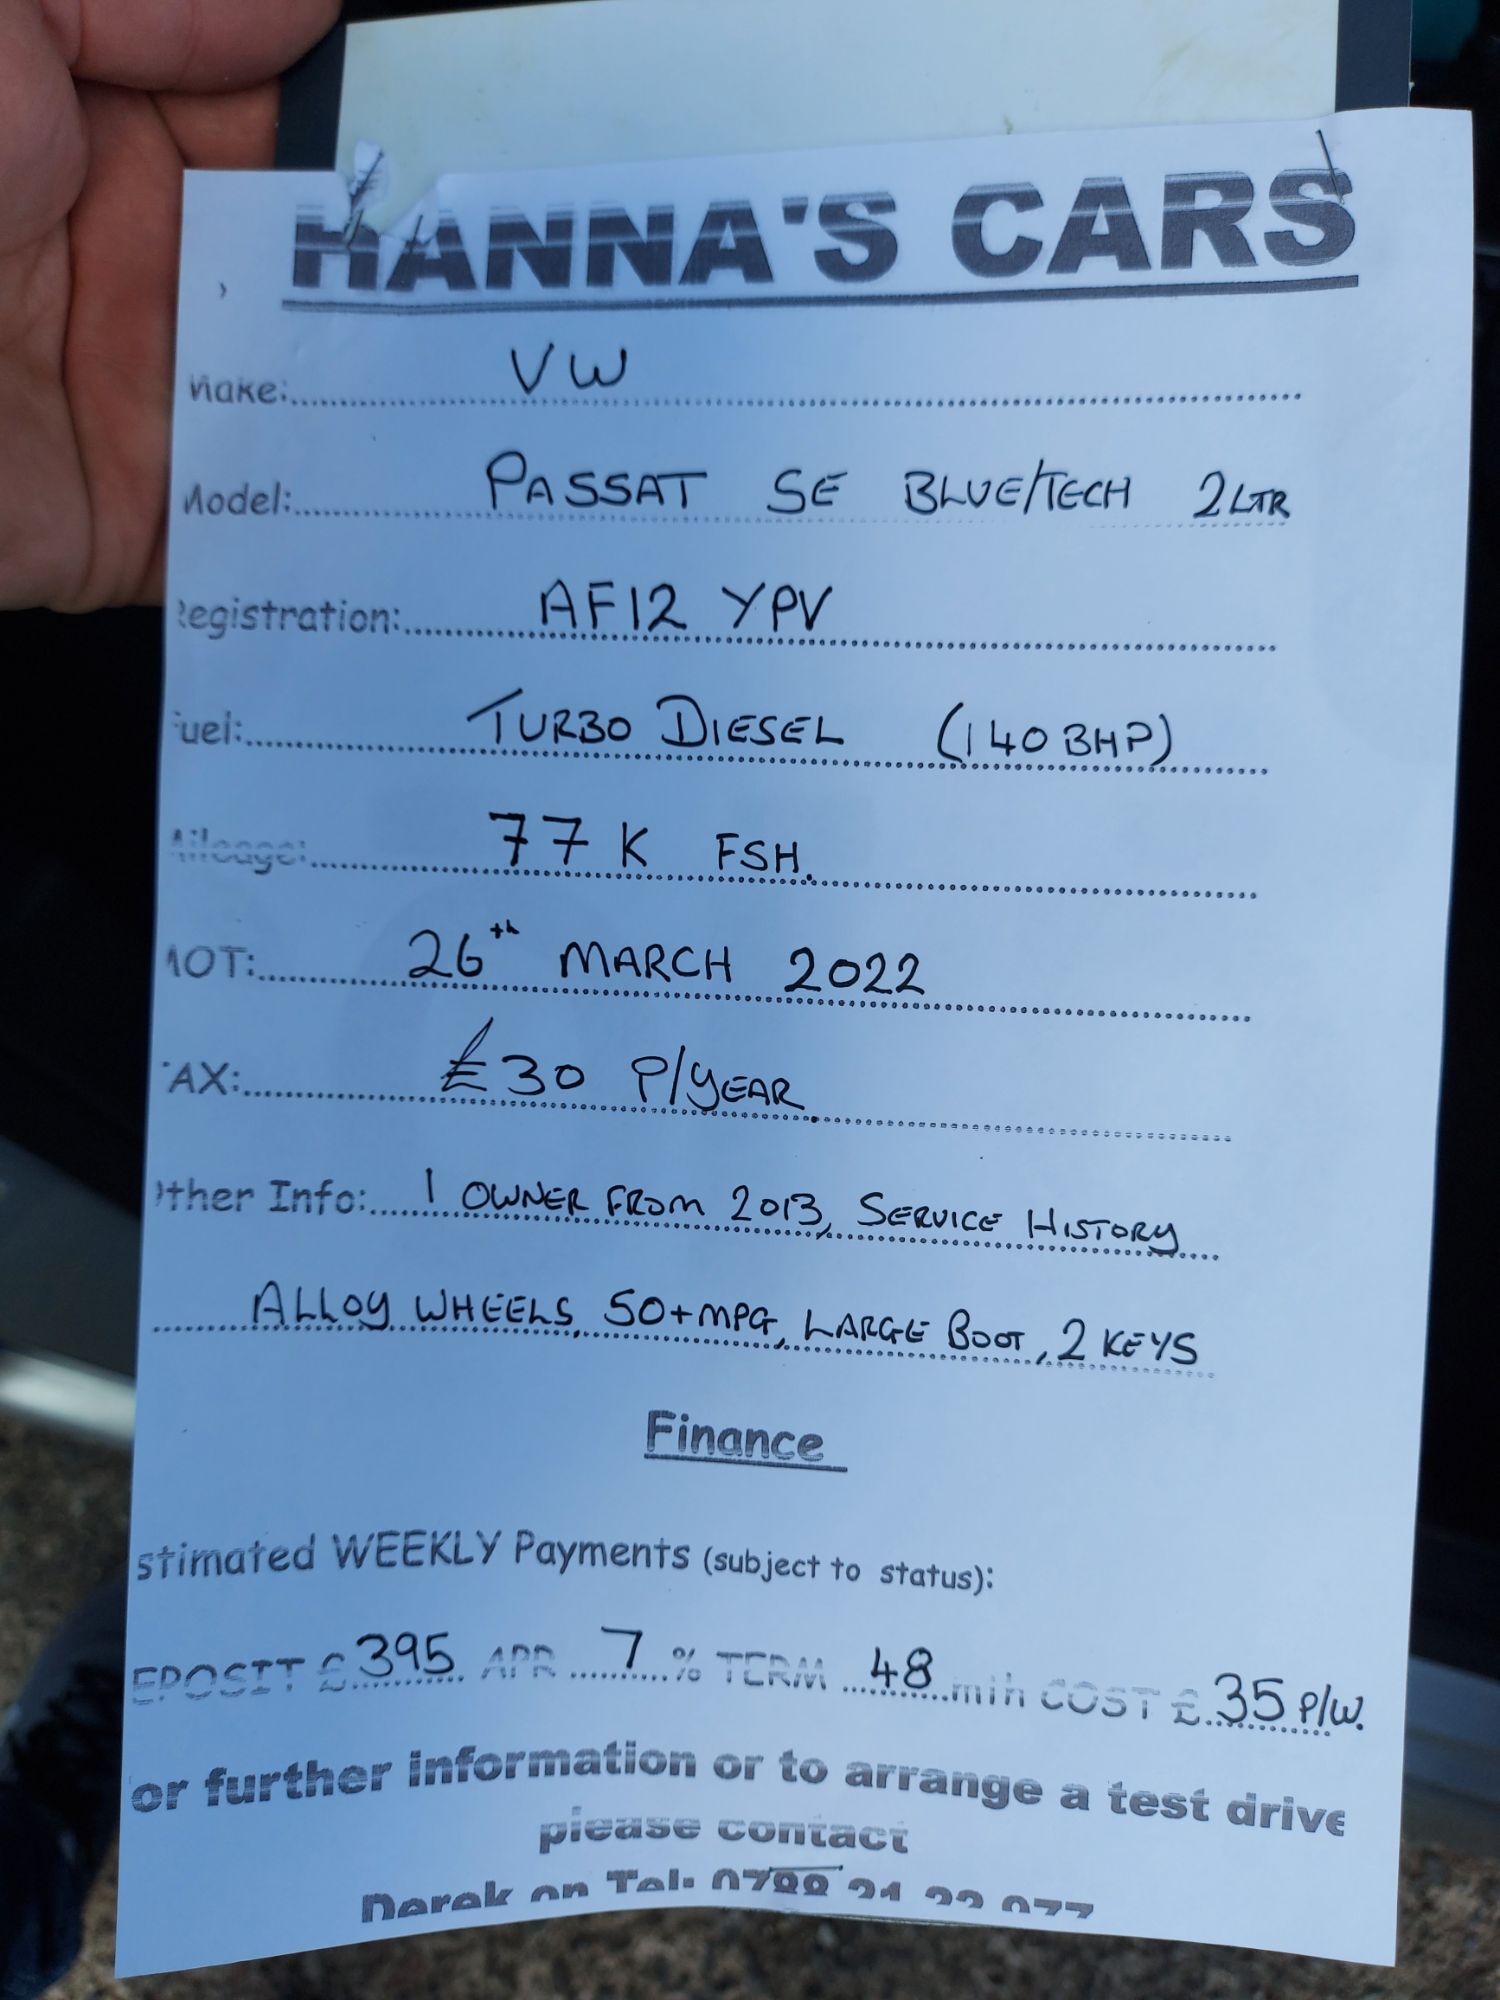 HANNA'S CARS
Make: VW
Model: PASSAT SE BLUE/TECH 2LTR
Registration: AF12 YPV
Fuel: TURBO DIESEL (140 BHP)
Mileage: 77K FSH.
MOT: 26th MARCH 2022
TAX: £30 P/YEAR
Other Info: 1 OWNER FROM 2013, SERVICE HISTORY
ALLOY WHEELS, 50+MPG, LARGE BOOT, 2 KEYS
Finance
stimated WEEKLY Payments (subject to status):
EPOSIT £395 APR 7% TERM 48 mth COST £35 P/W.
or further information or to arrange a test drive
please contact
Derek on Tel: